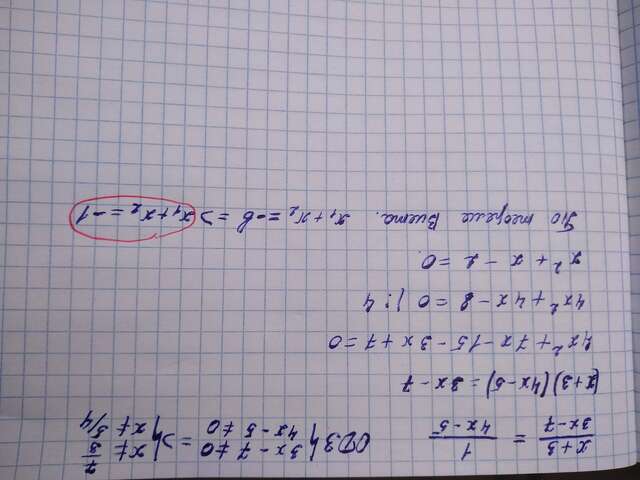 x+3/3x-7 = 1/4x-5 ОДЗ { 3x-7≠0 4x-5≠0 => { x≠7/3 x≠5/4
(x+3)(4x-5)=3x-7
4x²+7x-15-3x+7=0
4x²+4x-8=0 |:4
x²+x-2=0.
По теореме Виета. x₁+x₂=-b => x₁+x₂=-1